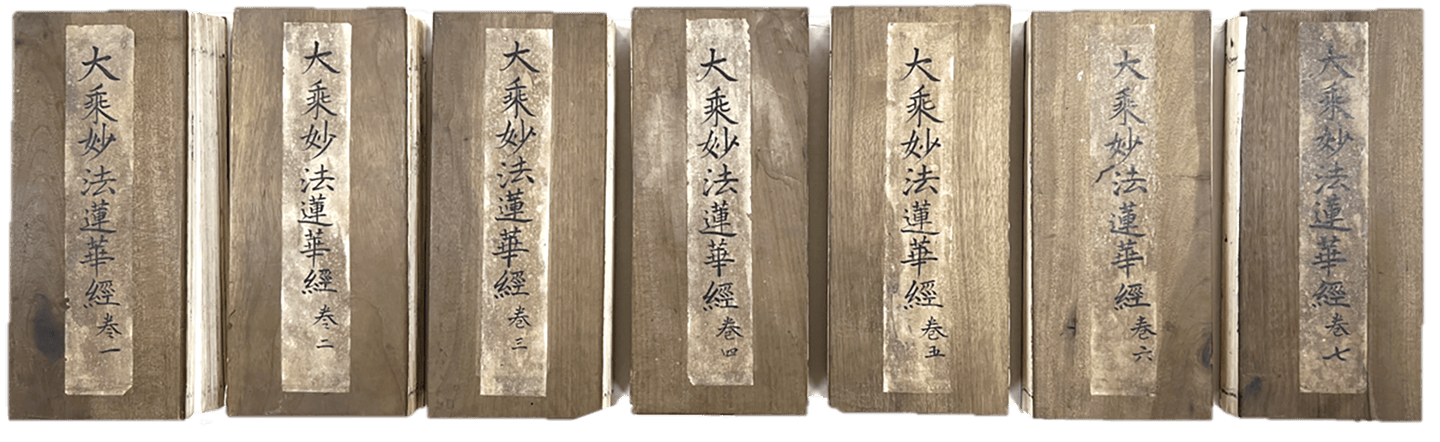 大乘妙法蓮華經 卷一
大乘妙法蓮華經 卷二
大乘妙法蓮華經 卷三
大乘妙法蓮華經 卷四
大乘妙法蓮華經 卷五
大乘妙法蓮華經 卷六
大乘妙法蓮華經 卷七